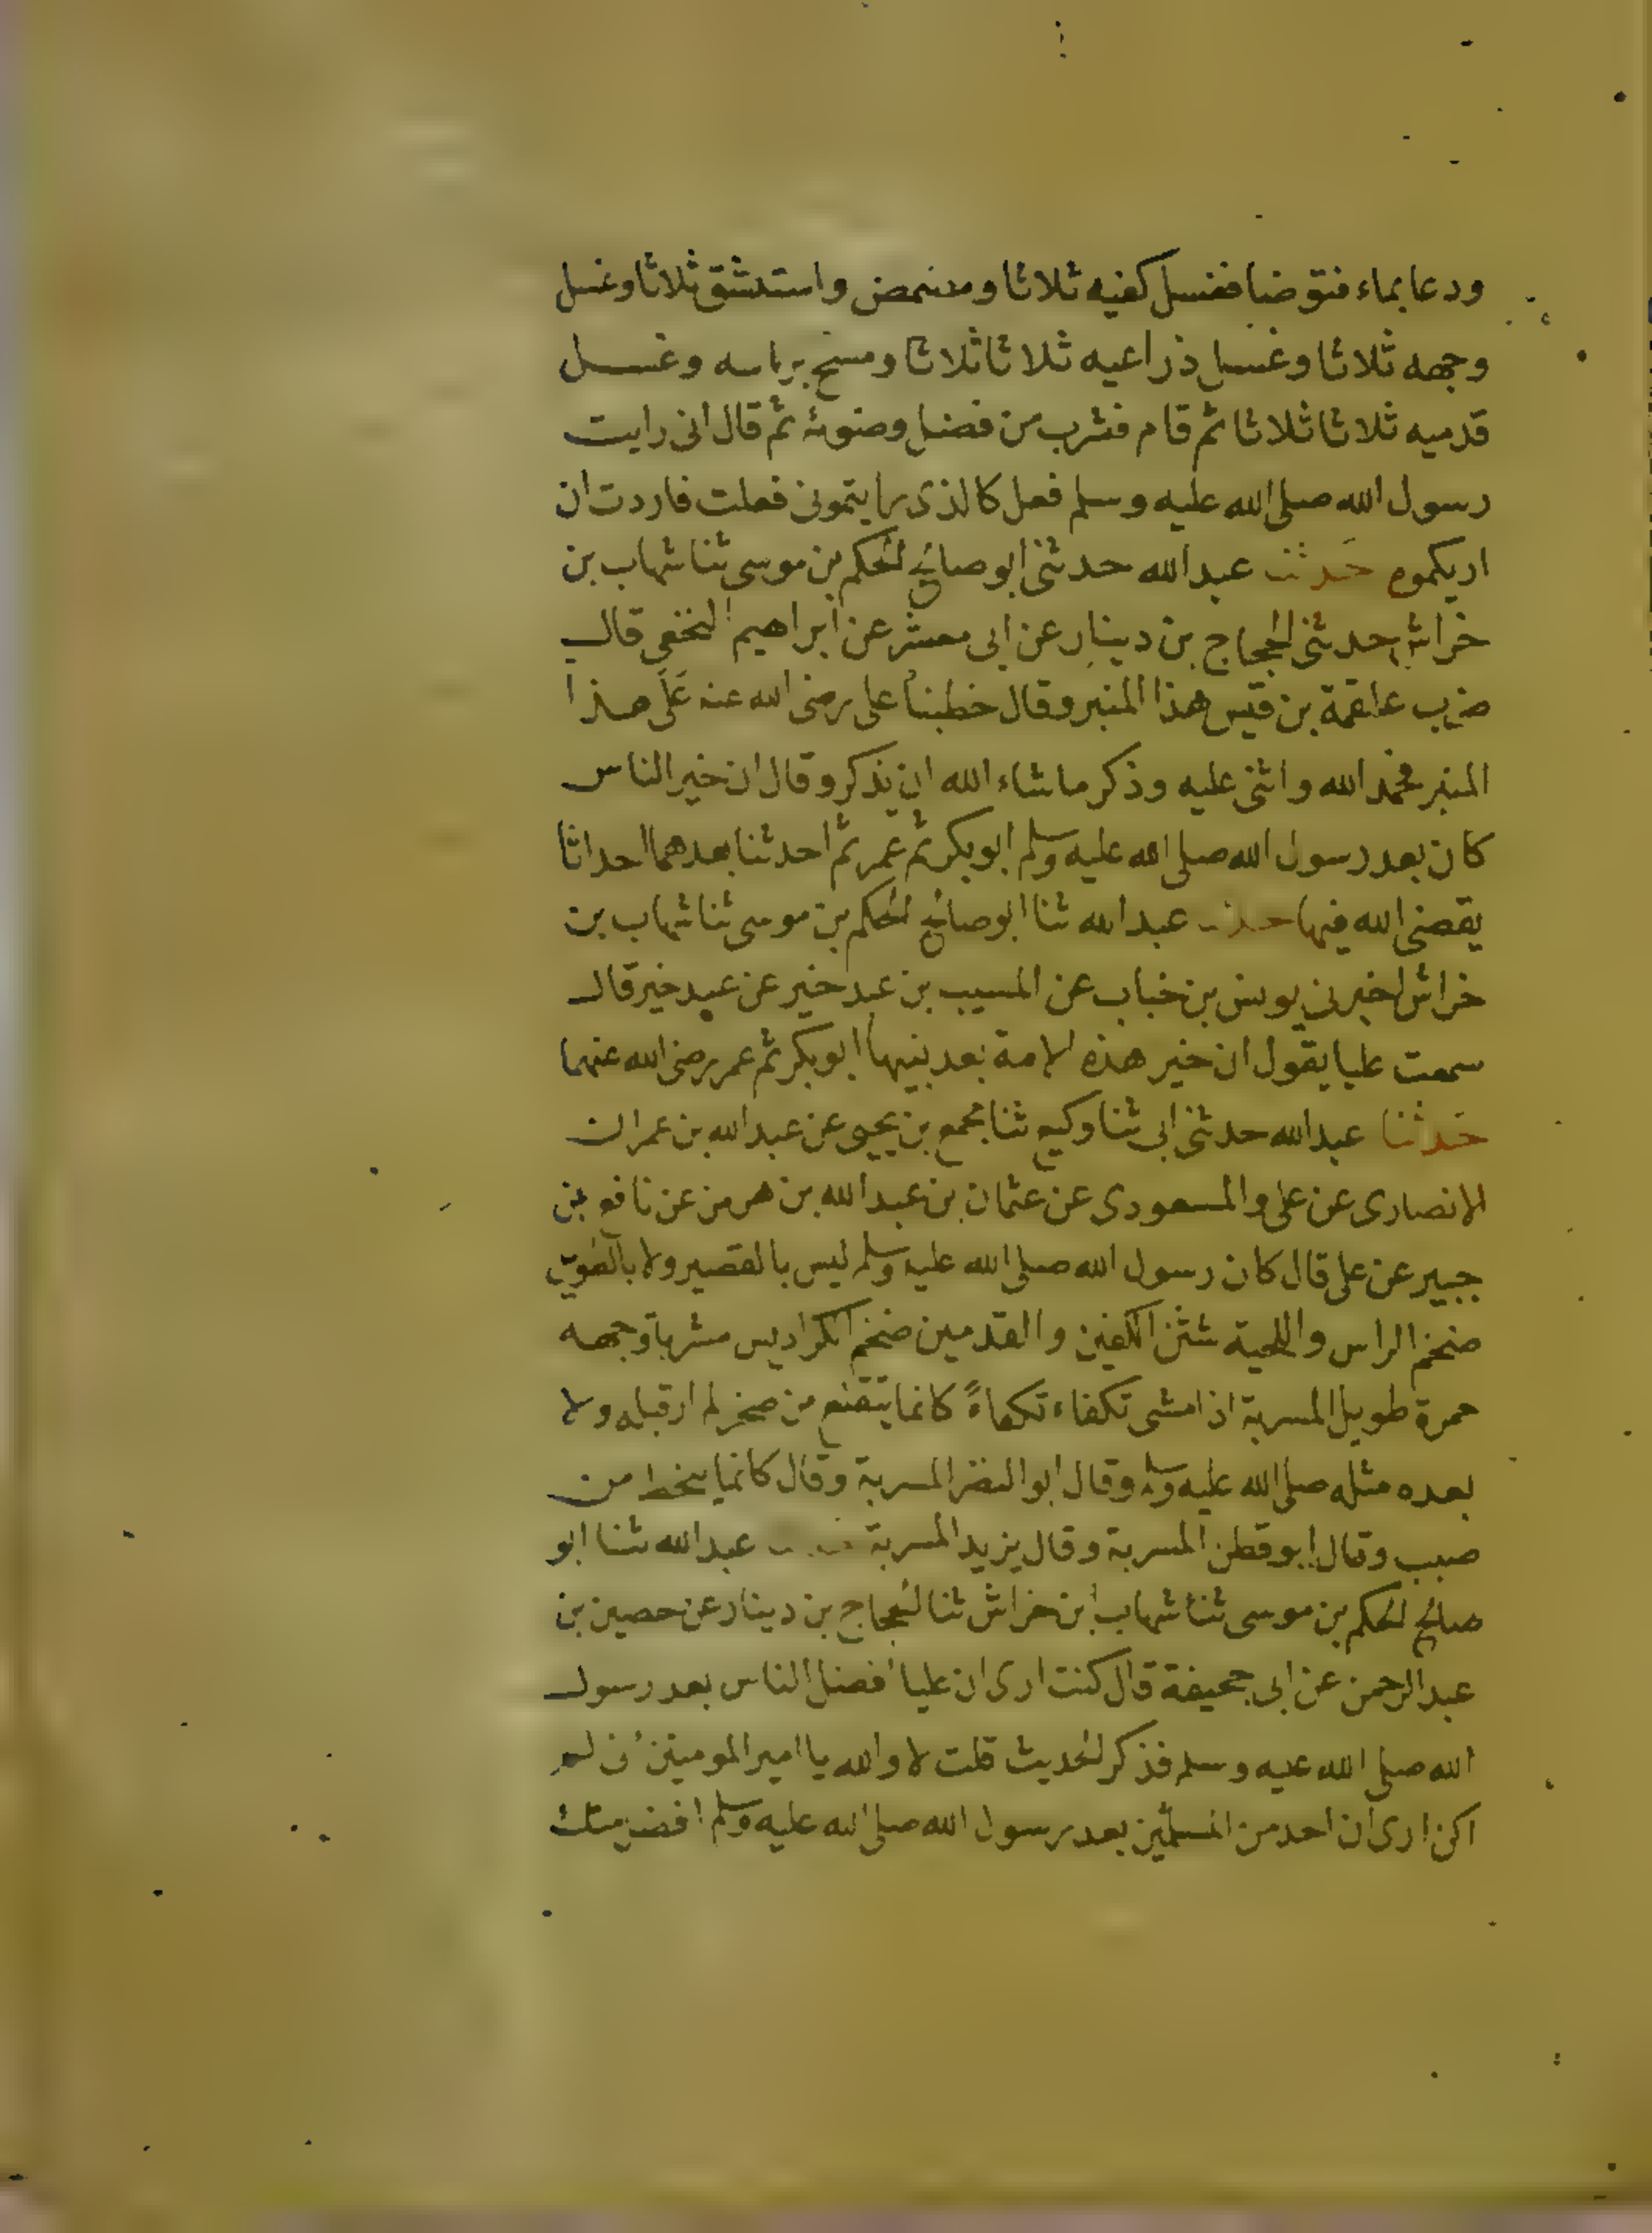 ودعا بماء فتوضا فغسل كفيه ثلاثا ومضمض واستنشق ثلاثا وغسل
وجهه ثلاثا وغسل ذراعيه ثلاثا ثلاثا ومسح براسه وغسل
قدميه ثلاثا ثلاثا ثم قام فشرب من فضل وضوئه ثم قال انى رايت
رسول الله صلى الله عليه وسلم فعل كالذى رايتمونى فعلت فاردت ان
اريكموه حدثنا عبدالله حدثنى ابو صالح الحكم بن موسى ثنا شهاب بن
خراش حدثنى الحجاج بن دينار عن ابى معشر عن ابراهيم النخعى قال
ضرب علقمة بن قيس هذا المنبر وقال خطبنا على رضى الله عنه على هذا
المنبر فحمد الله واثنى عليه وذكر ما شاء الله ان يذكر وقال ان خير الناس
كان بعد رسول الله صلى الله عليه وسلم ابو بكر ثم عمر ثم احدثنا بعدهما احداثا
يقضى الله فيها حدثنا عبدالله ثنا ابو صالح الحكم بن موسى ثنا شهاب بن
خراش اخبرنى يونس بن خباب عن المسيب بن عبد خير عن عبد خير قال
سمعت عليا يقول ان خير هذه الامة بعد نبيها ابو بكر ثم عمر رضى الله عنهما
حدثنا عبدالله حدثنى ابى ثنا وكيع ثنا مجمع بن يحيى عن عبدالله بن عمران
الانصارى عن على والمسعودى عن عثمان بن عبدالله بن هرمز عن نافع بن
جبير عن على قال كان رسول الله صلى الله عليه وسلم ليس بالقصير ولا بالطويل
ضخم الراس واللحية شثن الكفين والقدمين ضخم الكراديس مشربا وجهه
حمرة طويل المسربة اذا مشى تكفاء تكفاءً كانما يتقلع من صخر لم ار قبله ولا
بعده مثله صلى الله عليه وسلم وقال ابو النضر المسربة وقال كانما ينحط من
صبب وقال ابو قطن المسربة وقال يزيد المسربة حدثنا عبدالله ثنا ابو
صالح الحكم بن موسى ثنا شهاب ابن خراش ثنا الحجاج بن دينار عن حصين بن
عبدالرحمن عن ابى جحيفة قال كنت ارى ان عليا افضل الناس بعد رسول
الله صلى الله عليه وسلم فذكر الحديث قلت لا والله يا امير المومنين انى لم
اكن ارى ان احد من المسلمين بعد رسول الله صلى الله عليه وسلم افضل منك